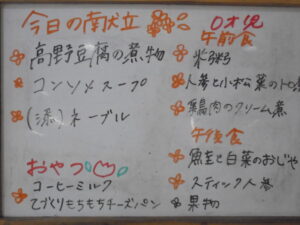 今日の献立
高野豆腐の煮物
コンソメスープ
(添)ネーブル
おやつ
コーヒーミルク
てづくりもちもちチーズパン
0才児
午前食
米粥
人参と小松菜のトロ煮
鶏肉のクリーム煮
午後食
魚と白菜のおじや
スティック人参
果物